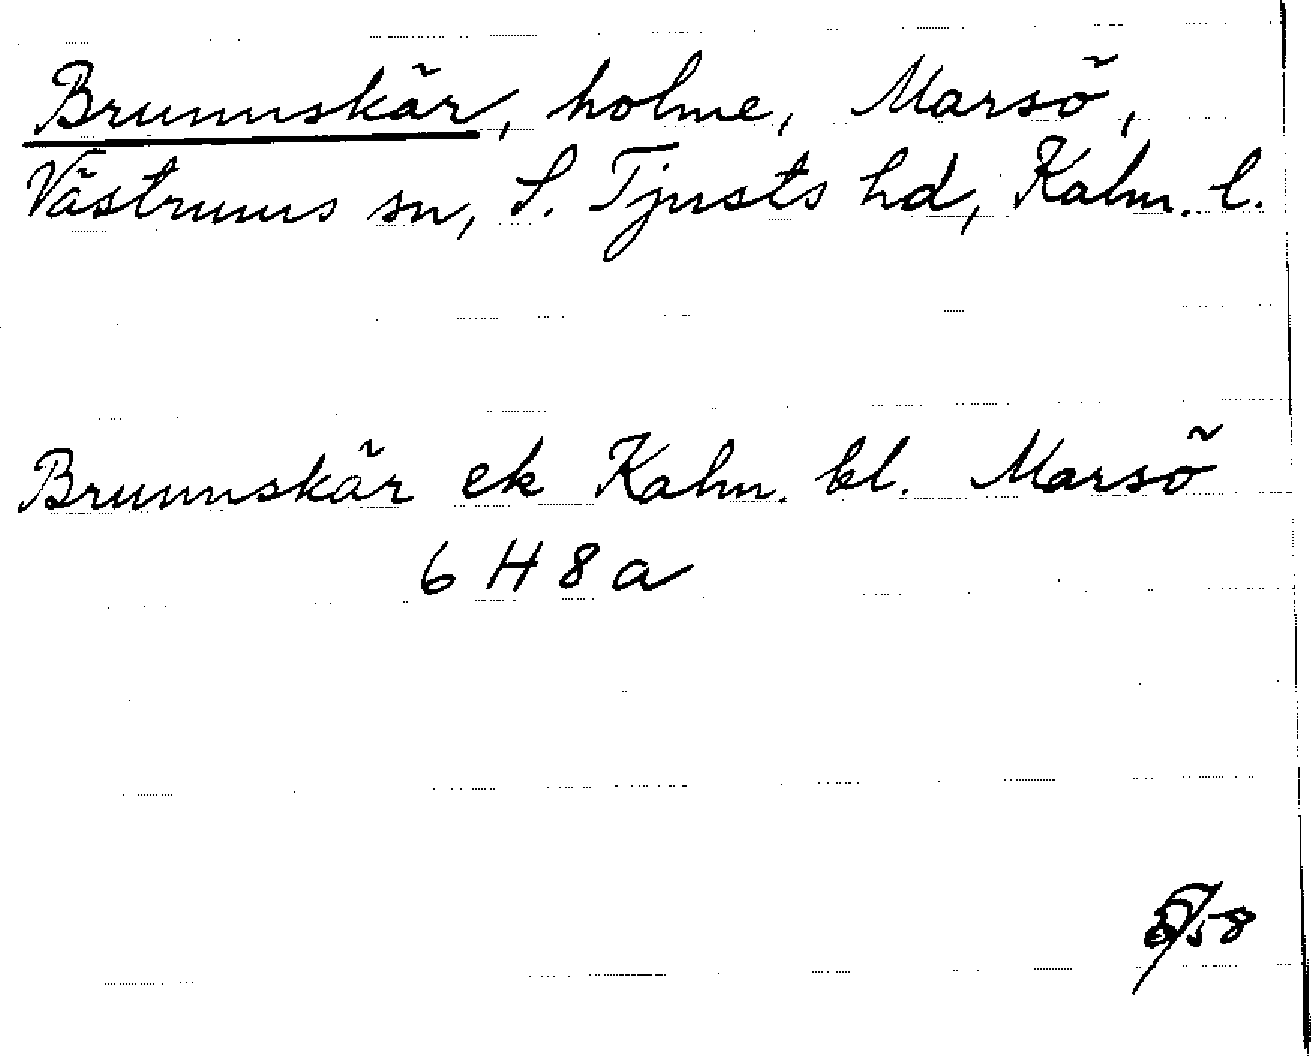 Brunnskär, holme, Marsö,
Västrums sn, S. Tjusts hd, Kalm. l.
Brunnskär ek Kalm. bl. Marsö
6 H 8 a
58